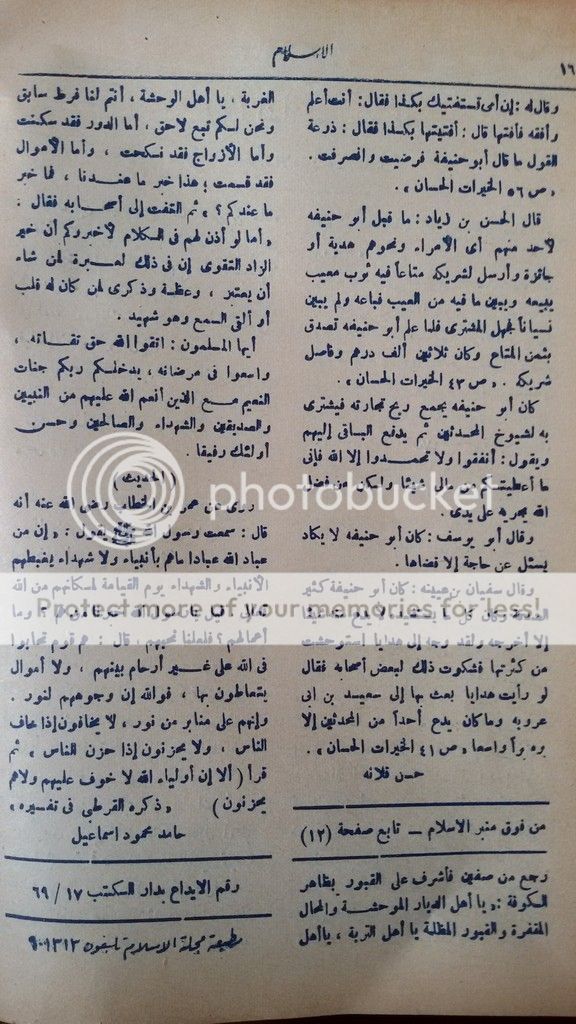 الإسلام
١٦
وقال له : إن أمى تستفتيك بكذا فقال : أنت أعلم
وأفقه فأفتها قال : أفتيتها بكذا فقال : ذرعة
القول ما قال أبو حنيفة فرضيت وانصرفت .
« ص ٥٦ الخيرات الحسان » .
قال الحسن بن زياد : ما قبل أبو حنيفه
لأحد منهم أى الأمراء ونحوهم هدية أو
جائزة وأرسل لشريكه متاعا فيه ثوب معيب
يبيعه ويبين ما فيه من العيب فباعه ولم يبين
نسياناً لجهل المشترى فلما علم أبو حنيفه تصدق
بثمن المتاع وكان ثلاثين ألف درهم وفاصل
شريكه . « ص ٤٣ الخيرات الحسان » .
كان أبو حنيفه يجمع ربح تجارته فيشترى
به لشيوخ المحدثين ثم يدفع الباقى إليهم
ويقول : أنفقوا ولا تحمدوا إلا الله فإنى
ما أعطيتكم من مالى شيئا ولكن من فضل
الله يجريه على يدى .
وقال أبو يوسف : كان أبو حنيفه لا يكاد
يسئل عن حاجة إلا قضاها .
وقال سفيان بن عيينه : كان أبو حنيفة كثير
إلا أخرجه ولقد وجه إلى هدايا استوحشت
من كثرتها فشكوت ذلك لبعض أصحابه فقال
لو رأيت هدايا بعث بها إلى سعيد بن ابى
عروبه وما كان يدع أحداً من المحدثين إلا
بره برا واسعا « ص ٤١ الخيرات الحسان » .
حسن فلانه
من فوق منبر الاسلام — تابع صفحة (١٢)
رجع من صفين فأشرف على القبور بظاهر
الكوفة : « يا أهل الديار الموحشة والمحال
المقفرة والقبور المظلة يا أهل التربة ، يا أهل
الغربة ، يا أهل الوحشة ، أنتم لنا فرط سابق
ونحن لكم تبع لاحق ، أما الدور فقد سكنت
وأما الأزواج فقد نكحت ، وأما الأموال
فقد قسمت ؛ هذا خبر ما عندنا ، فما خبر
ما عندكم ؟ » ثم التفت إلى أصحابه فقال .
« أما لو أذن لهم فى الكلام لأخبروكم أن خير
الزاد التقوى إن فى ذلك لعبرة لمن شاء
أن يعتبر ، وعظة وذكرى لمن كان له قلب
أو ألقى السمع وهو شهيد .
أيها المسلمون : اتقوا الله حق تقاته ،
واسعوا فى مرضاته ، يدخلكم ربكم جنات
النعيم مع الذين أنعم الله عليهم من النبيين
والصديقين والشهداء والصالحين وحسن
أولئك رفيقا .
( الحديث )
روى عن عمر بن الخطاب رضى الله عنه أنه
قال : سمعت رسول الله يقول : « إن من
عباد الله عبادا ماهم بأنبياء ولا شهداء يغبطهم
الأنبياء والشهداء يوم القيامة لمكانتهم من الله
أعمالهم ؟ فلعلنا نحبهم . قال : هم قوم تحابوا
فى الله على غير أرحام بينهم ، ولا أموال
يتعاطون بها ، فوالله إن وجوههم لنور .
وإنهم على منابر من نور ، لا يخافون إذا خاف
الناس ، ولا يحزنون إذا حزن الناس » ثم
قرأ ( ألا إن أولياء الله لا خوف عليهم ولاهم
يحزنون ) « ذكره القرطبى فى تفسيره »
حامد محمود اسماعيل
رقم الايداع بدار الكتب ١٧ / ٦٩
مطبعة مجلة الاسلام تليفون ٩٠١٣١٢
photobucket
Protect more of your memories for less!